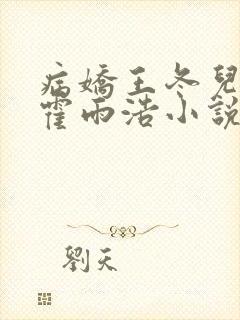 病嬌王冬兒
霍雨浩小說
劉天